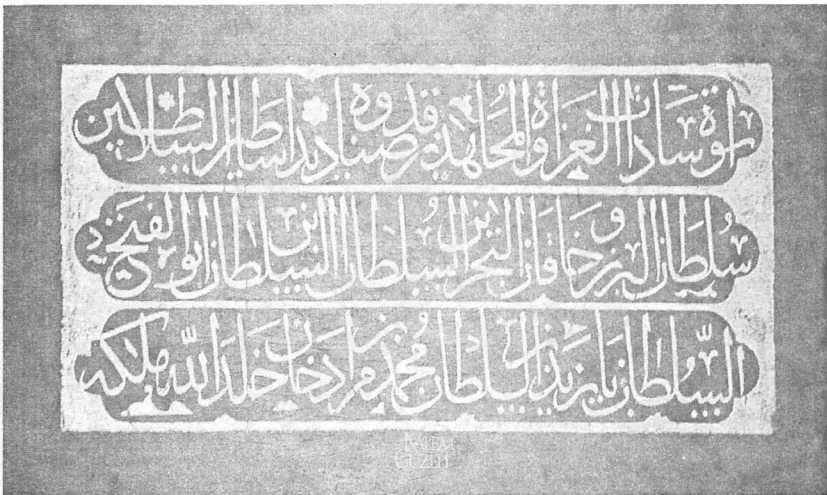 سادات الغزاة والمجاهدين قدوة صناديد اساطين السلاطين
سلطان البرين و خاقان البحرين السلطان ابن السلطان ابو الفتح
السلطان بايزيد بن السلطان محمد بن مراد خان خلد الله ملكه